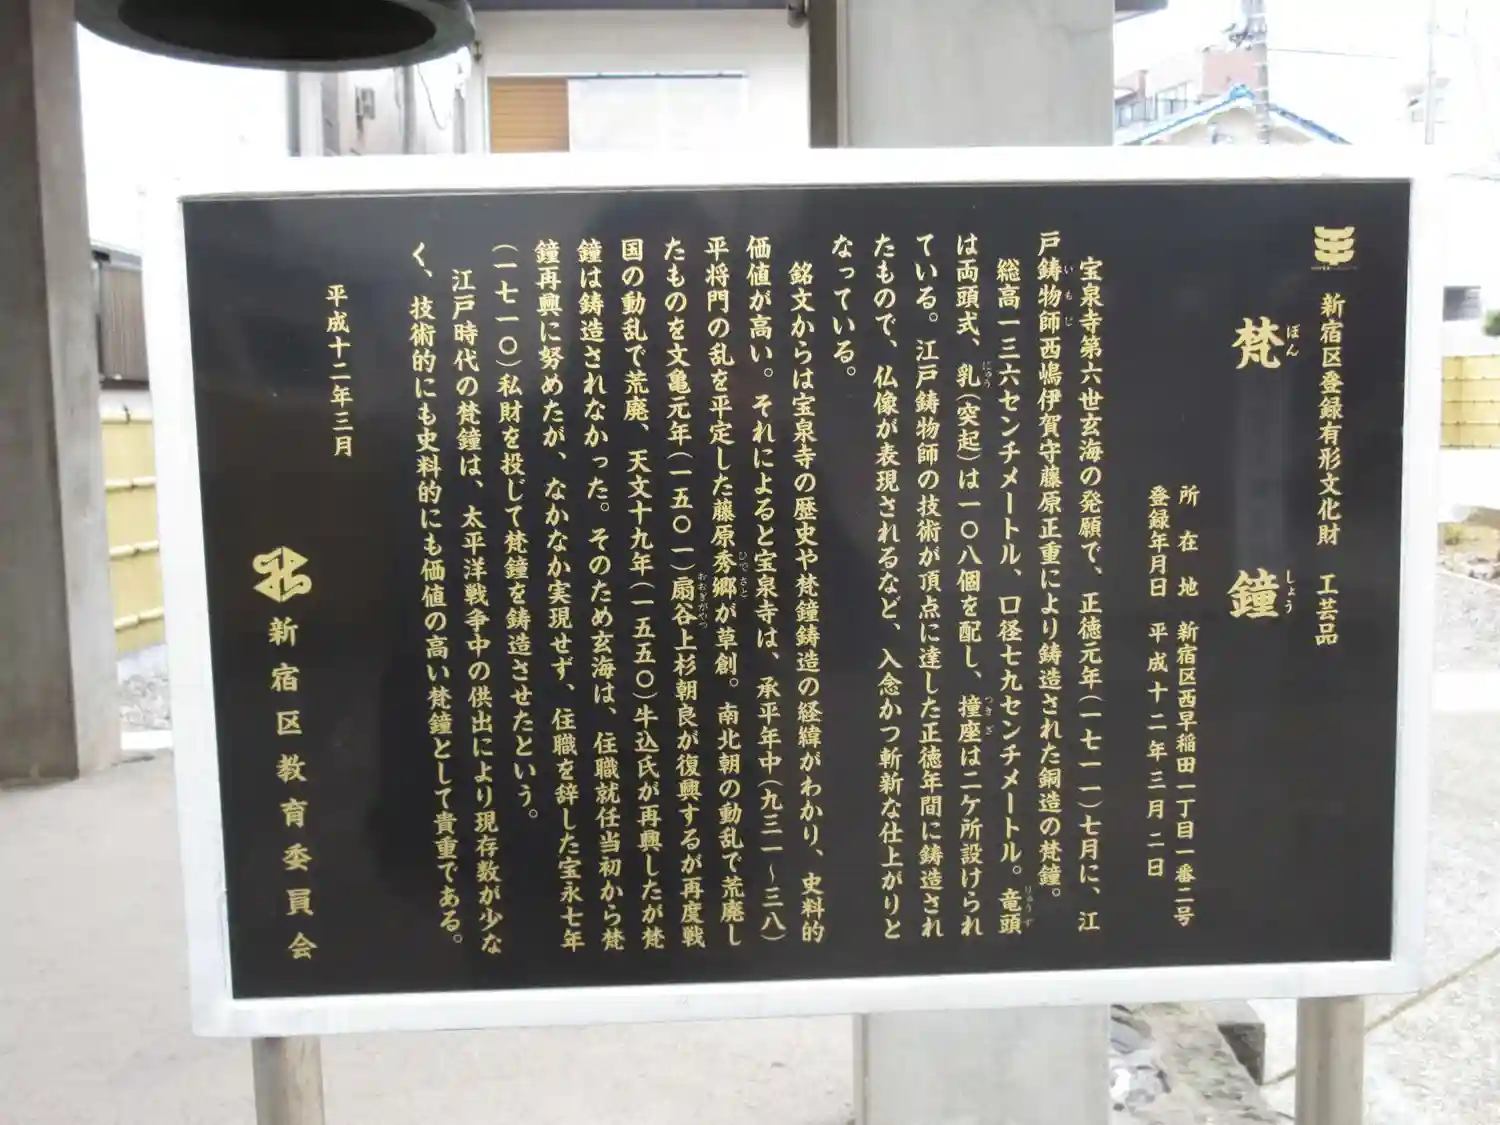 新宿区登録有形文化財 工芸品
梵鐘
ぼん しょう
所在地 新宿区西早稲田一丁目一番二号
登録年月日 平成十二年三月二日
宝泉寺第六世玄海の発願で、正徳元年(一七一一)七月に、江
戸鋳物師西嶋伊賀守藤原正重により鋳造された銅造の梵鐘。
いもじ
総高一三六センチメートル、口径七九センチメートル。竜頭
りゅうず
は両頭式、乳(突起)は一〇八個を配し、撞座は二ケ所設けられ
にゅう つきざ
ている。江戸鋳物師の技術が頂点に達した正徳年間に鋳造され
たもので、仏像が表現されるなど、入念かつ斬新な仕上がりと
なっている。
銘文からは宝泉寺の歴史や梵鐘鋳造の経緯がわかり、史料的
価値が高い。それによると宝泉寺は、承平年中(九三一〜三八)
平将門の乱を平定した藤原秀郷が草創。南北朝の動乱で荒廃し
ひでさと
たものを文亀元年(一五〇一)扇谷上杉朝良が復興するが再度戦
おおぎがやつ
国の動乱で荒廃、天文十九年(一五五〇)牛込氏が再興したが梵
鐘は鋳造されなかった。そのため玄海は、住職就任当初から梵
鐘再興に努めたが、なかなか実現せず、住職を辞した宝永七年
(一七一〇)私財を投じて梵鐘を鋳造させたという。
江戸時代の梵鐘は、太平洋戦争中の供出により現存数が少な
く、技術的にも史料的にも価値の高い梵鐘として貴重である。
平成十二年三月
新宿区教育委員会